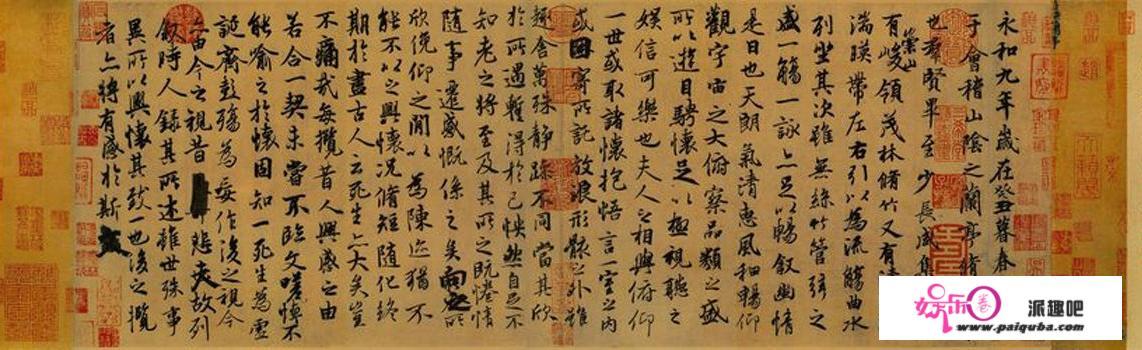 永和九年歲在癸丑暮春
于會稽山陰之蘭亭脩
也羣賢畢至少長咸集
有崇山峻領茂林脩竹又有清
湍暎帶左右引以為流觴曲水
列坐其次雖無絲竹管弦之
盛一觴一詠亦足以暢叙幽情
是日也天朗氣清惠風和暢仰
觀宇宙之大俯察品類之盛
所以遊目騁懷足以極視聽之
娛信可樂也夫人之相與俯仰
一世或取諸懷抱悟言一室之內
或因寄所託放浪形骸之外雖
趣舍萬殊靜躁不同當其欣
於所遇蹔得於己怏然自足不
知老之將至及其所之既惓情
隨事遷感慨係之矣向之所
欣俛仰之閒以為陳迹猶不
能不以之興懷況脩短隨化終
期於盡古人云死生亦大矣豈
不痛哉每攬昔人興感之由
若合一契未嘗不臨文嗟悼不
能喻之於懷固知一死生為虛
誕齊彭殤為妄作後之視今
亦由今之視昔悲夫故列
叙時人錄其所述雖世殊事
異所以興懷其致一也後之攬
者亦將有感於斯文
娱乐圈 派趣吧
www.paiquba.com